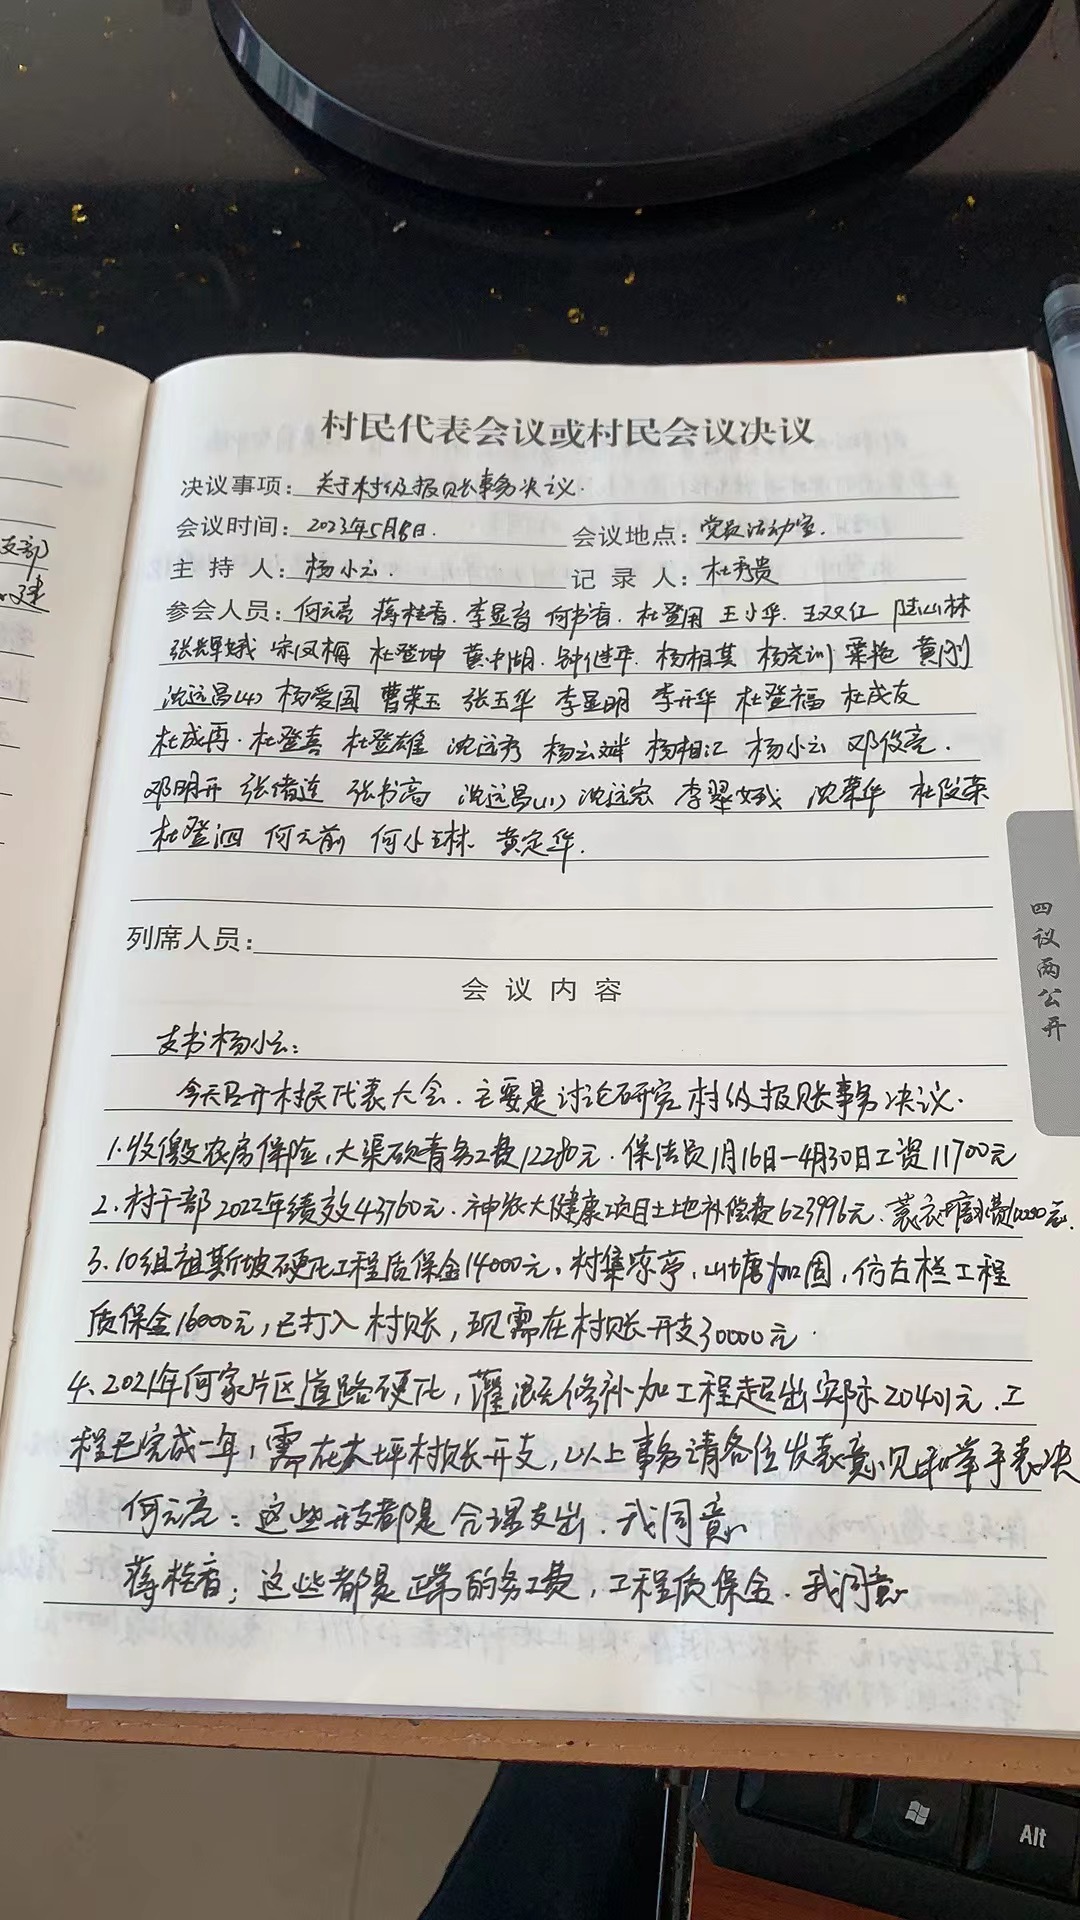 村民代表会议或村民会议决议
决议事项：关于村级报账事务决议.
会议时间：2023年5月8日. 会议地点：党员活动室.
主持人：杨小云. 记录人：杜秀贵
参会人员：何元亮 蒋桂香. 李显育 何书有. 杜登用 王小华. 王双红 陆山林
张辉娥 宋凤梅 杜登坤 黄中湖. 钟继平. 杨相其 杨克训 栗艳 黄刚
沈远昌(4) 杨爱国 曹荣玉 张玉华 李显明 李开华 杜登福 杜成友
杜成再. 杜登喜 杜登雄 沈远秀 杨云斌 杨相汇 杨小云 邓俊亮.
邓明开 张绪连 张书高 沈远昌(11) 沈远宏 李翠娥 沈荣华 杜俊荣
杜登泗 何元前 何小林 黄定华.
列席人员：
会议内容
支书杨小云：
今天召开村民代表大会. 主要是讨论研究村级报账事务决议.
1.收缴农房保险，大渠砍青务工费12280元. 保洁员1月16日—4月30日工资11700元
2.村干部2022年绩效43760元. 神农大健康项目土地补偿费623996元.
3.10组祖斯坡硬化工程质保金14000元，村集凉亭，山塘加固，仿古栏工程
质保金16000元，已打入村账，现需在村账开支30000元.
4.2021年何家片区道路硬化，灌混天修补加工程超出实际20401元.工
程已完成一年，需在大坪村账开支，以上事务请各位发表意见和举手表决
何元亮：这些开支都是合理支出. 我同意
蒋桂香：这些都是正常的务工费，工程质保金. 我同意
四议两公开
支部
建
Alt